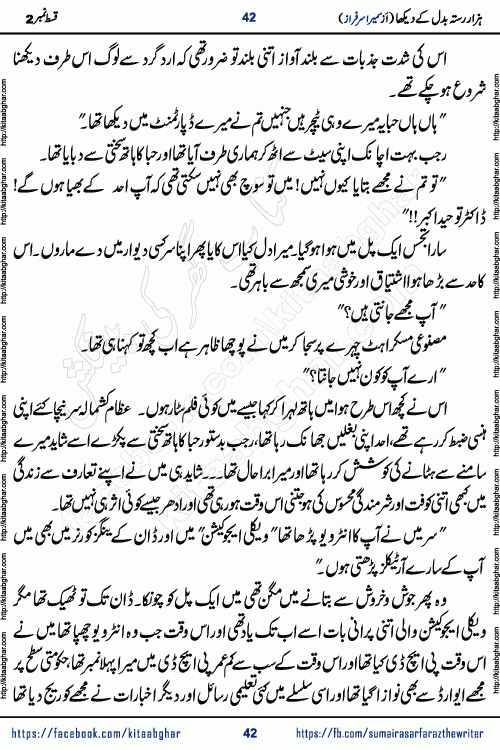 ہزار رستہ بدل کے دیکھا (از سمیرا سرفراز)
42
قسط نمبر 2
اس کی شدت جذبات سے بلند آواز اتنی بلند تو ضرور تھی کہ ارد گرد سے لوگ اس طرف دیکھنا
شروع ہو چکے تھے۔
"ہاں ہاں حبا یہ میرے وہی ٹیچر ہیں جنہیں تم نے میرے ڈپارٹمنٹ میں دیکھا تھا۔"
رجب بہت اچانک اپنی سیٹ سے اٹھ کر ہماری طرف آیا تھا اور حبا کا ہاتھ سختی سے دبایا تھا۔
"تو تم نے مجھے بتایا کیوں نہیں! میں تو سوچ بھی نہیں سکتی تھی کہ آپ احد کے بھیا ہوں گے!
ڈاکٹر توحید اکبر!!"
سارا تجسس ایک پل میں ہوا ہو گیا۔ میرا دل کیا اس کا یا پھر اپنا سر کسی دیوار میں دے ماروں۔ اس
کا حد سے بڑھا ہوا اشتیاق اور خوشی میری سمجھ سے باہر تھی۔
"آپ مجھے جانتی ہیں؟"
مصنوعی مسکراہٹ چہرے پر سجا کر میں نے پوچھا ظاہر ہے اب کچھ تو کہنا ہی تھا۔
"ارے آپ کو کون نہیں جانتا؟"
اس نے کچھ اس طرح ہوا میں ہاتھ لہرا کر کہا جیسے میں کوئی فلم سٹار ہوں۔ عظام کشمالہ سر نیچا کئے اپنی
ہنسی ضبط کر رہے تھے، احد اپنی بغلیں جھانک رہا تھا، رجب بدستور حبا کا ہاتھ سختی سے پکڑے اسے شاید میرے
سامنے سے ہٹانے کی کوشش کر رہا تھا اور میرا برا حال تھا۔۔۔ شاید ہی میں نے اپنے تعارف سے زندگی
میں کبھی اتنی کوفت اور شرمندگی محسوس کی ہو جتنی اس وقت ہو رہی تھی اور ادھر جیسے کوئی اثر ہی نہیں تھا۔
"سر میں نے آپ کا انٹرویو پڑھا تھا "ویکلی ایجوکیشن" میں اور ڈان کے ینگز کورنر میں بھی میں
آپ کے سارے آرٹیکلز پڑھتی ہوں۔"
وہ پھر جوش و خروش سے بتانے میں مگن تھی میں ایک پل کو چونکا۔ ڈان تک تو ٹھیک تھا مگر
ویکلی ایجوکیشن والی اتنی پرانی بات اسے اب تک یاد تھی اور اس وقت جب وہ انٹرویو چھپا تھا میں نے
اس وقت پی ایچ ڈی کیا تھا اور اس وقت کے سب سے کم عمر پی ایچ ڈی میں میرا پہلا نمبر تھا، حکومتی سطح پر
مجھے ایوارڈ سے بھی نوازا گیا تھا اور اسی سلسلے میں کئی تعلیمی رسائل اور دیگر اخبارات نے مجھے کوریج دیا تھا
https://facebook.com/kitaabghar
42
https://fb.com/sumairasarfarazthewriter
http://kitaabghar.com